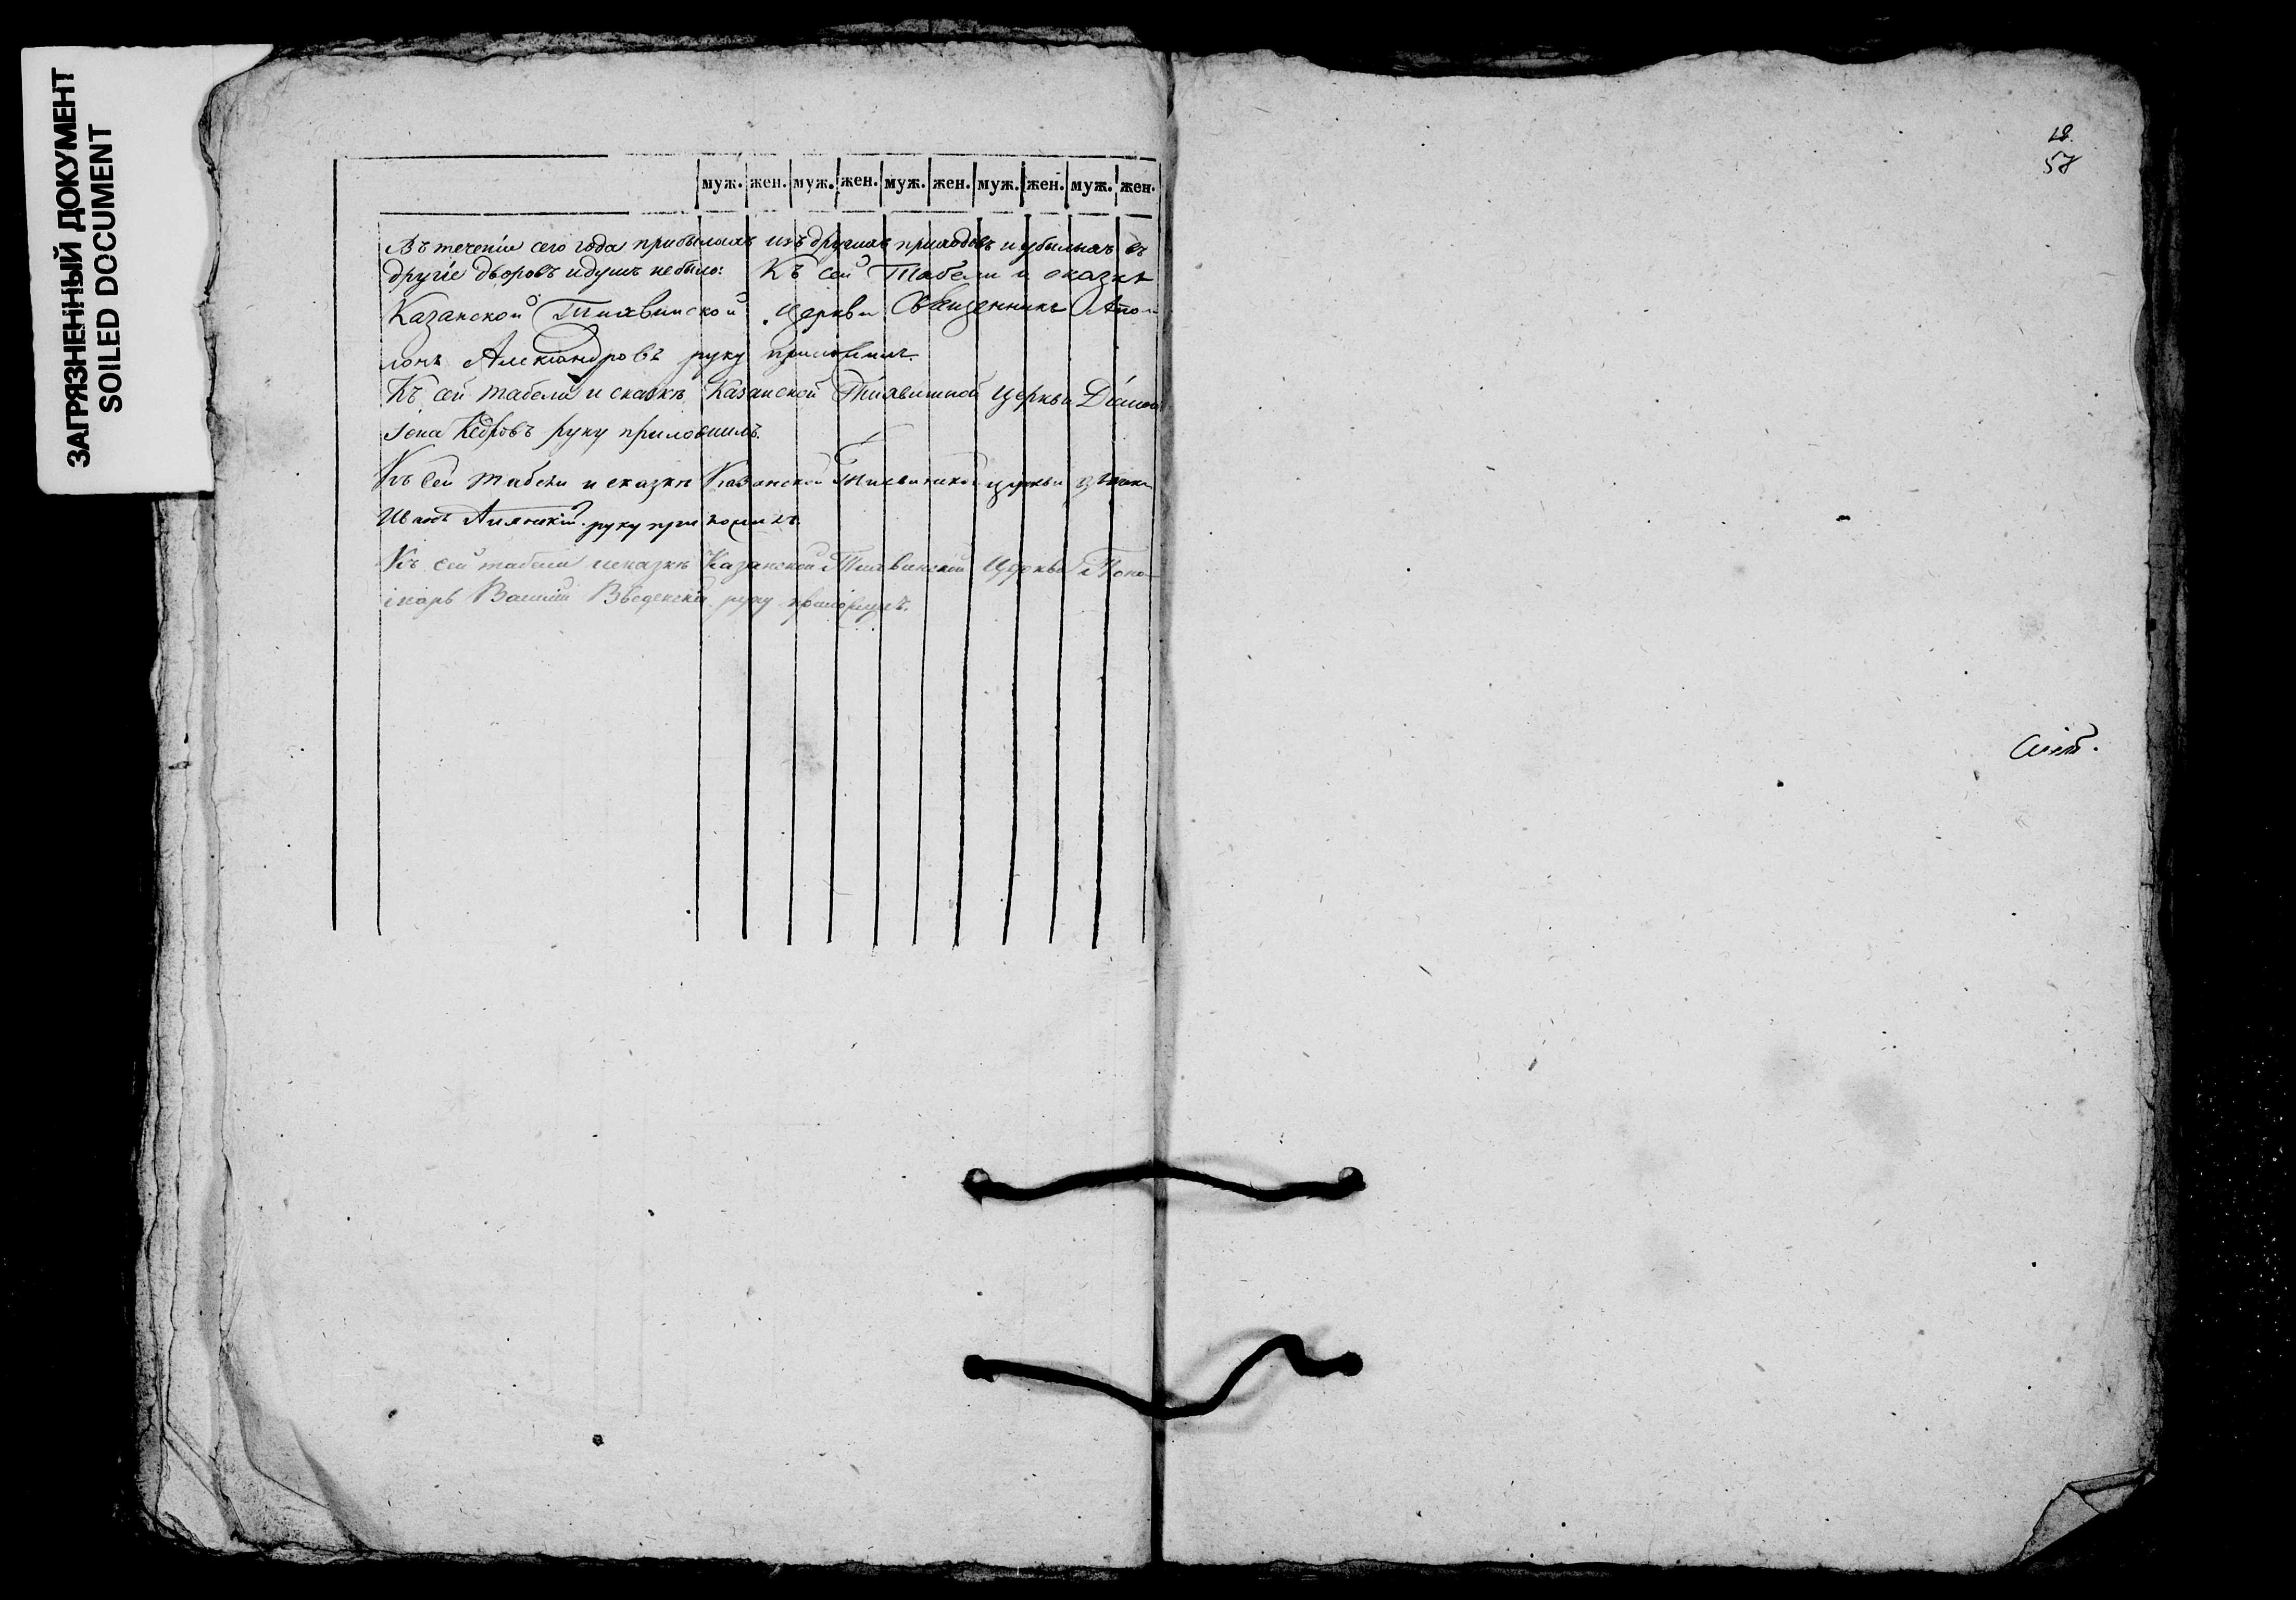 ЗАГРЯЗНЕННЫЙ ДОКУМЕНТ
SOILED DOCUMENT
муж. жен. муж. жен. муж. жен. муж. жен. муж. жен.
Въ теченіи сего года прибылыхъ изъ другихъ приходовъ и убылыхъ въ
другіе дворовъ и душъ не было: Къ сей Табели и сказкѣ
Казанской Тихвинской церкви Священникъ Апо-
лонъ Александровъ руку приложилъ.
Къ сей табели и сказкѣ Казанской Тихвинской церкви Діакон
Іона Кедровъ руку приложилъ.
Къ сей табели и сказкѣ Казанской Тихвинской церкви
Иванъ руку приложилъ
Къ сей табели и сказкѣ Казанской Тихвинской Церкви Поно-
марь Введенскій руку приложилъ.
18.
58